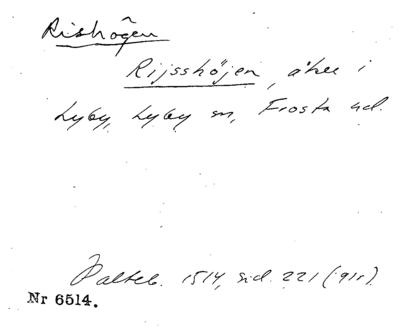 Rishögen
Rijsshöjen, åker i
Lyby, Lyby sn, Frosta hd.
Palteb. 1514, sid. 221 (91r).
Nr 6514.